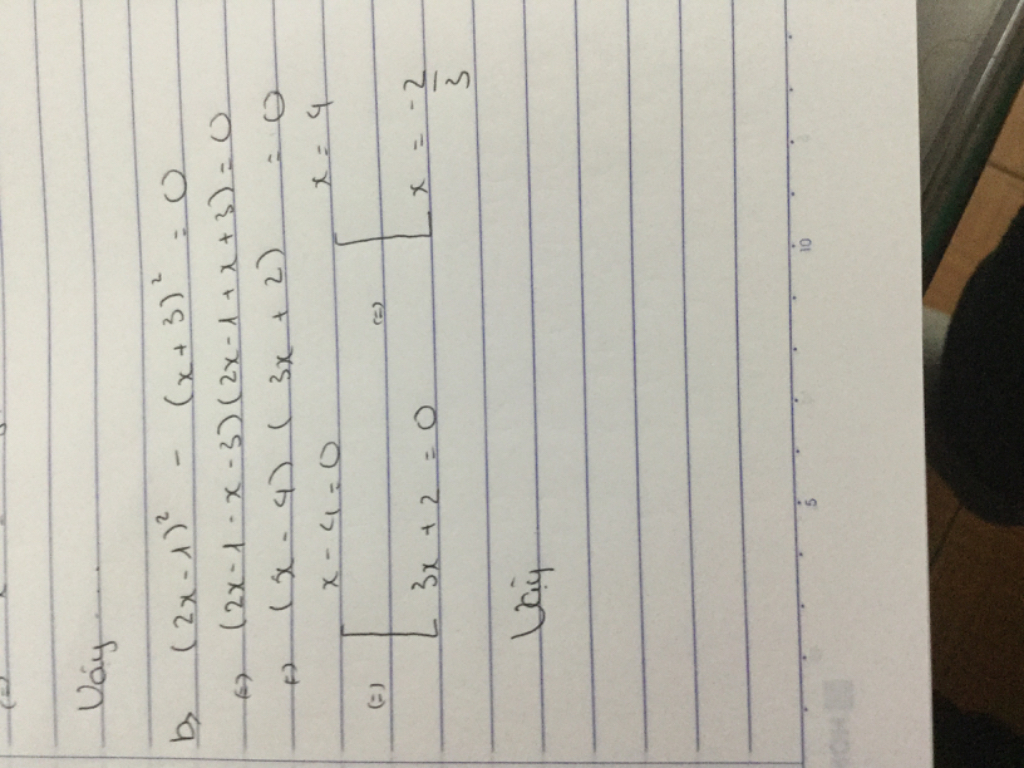 Vậy....
b, (2x-1)² - (x+3)² = 0
(=) (2x-1-x-3)(2x-1+x+3)=0
(=) (x-4)(3x+2) = 0
(=) [ x-4=0 (=) [ x=4
3x+2=0 x = -2/3
Vậy
5 10